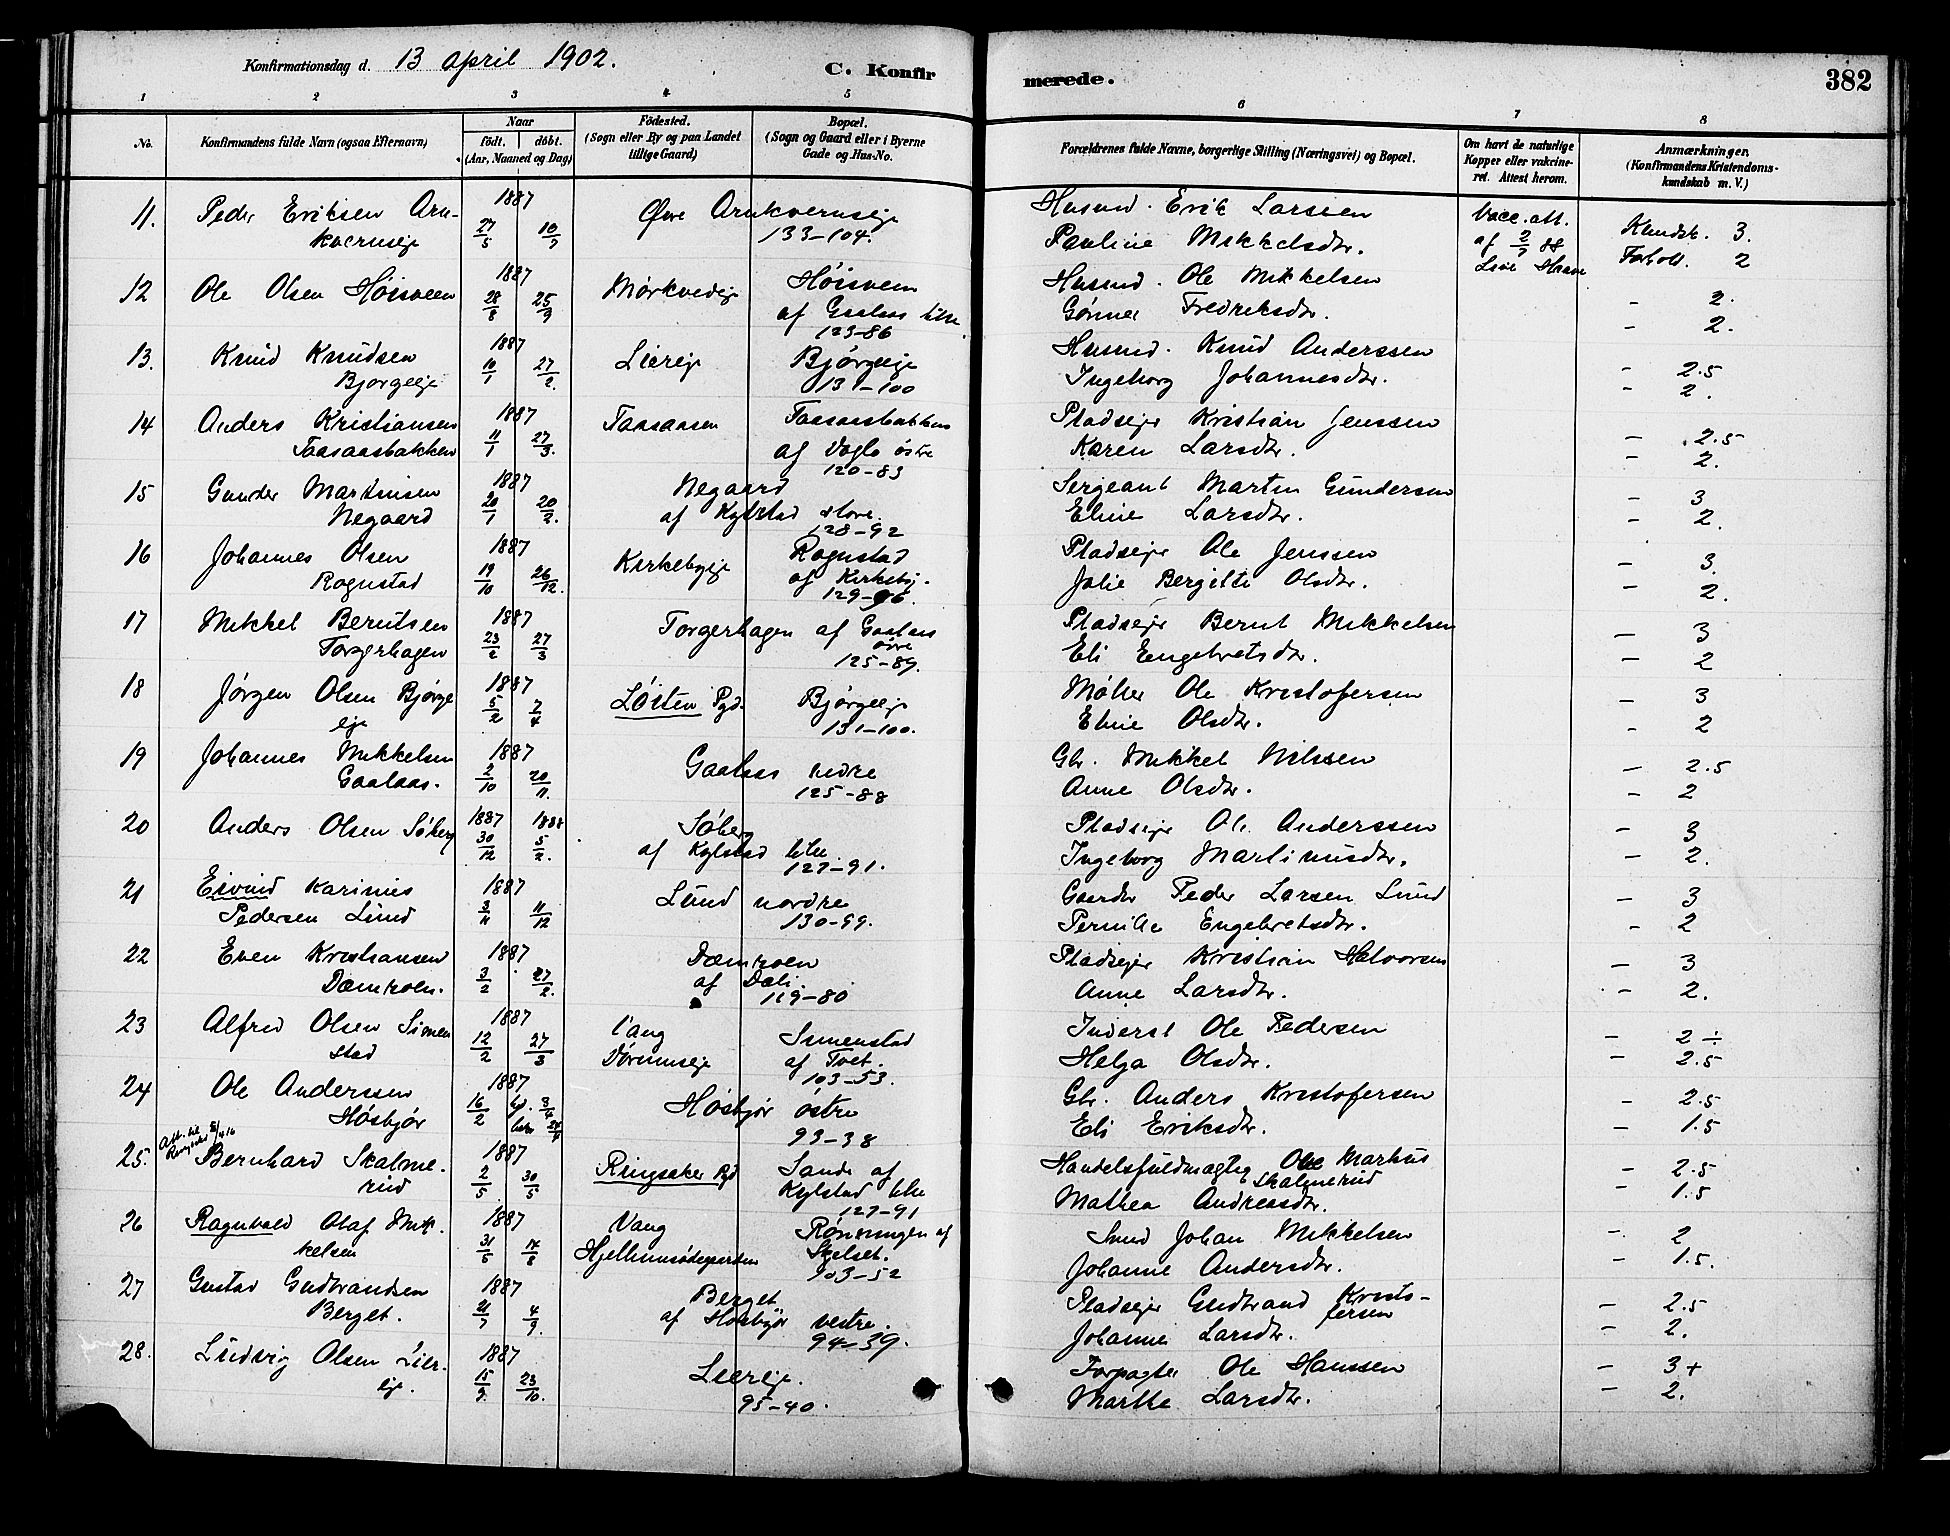 Konfirmationsdag d. 13 april 1902. C. Konfirmerede. 382
1 2 3 4 5 6 7 8
No. Konfirmandens fulde Navn (ogsaa Efternavn) Naar født. døbt. (Aar, Maaned og Dag) Fødested. (Sogn eller By og paa Landet tillige Gaard) Bopæl. (Sogn og Gaard eller i Byerne Gade og Hus-No. Forældrenes fulde Navne, borgerlige Stilling (Næringsvei) og Bopæl. Om havt de naturlige Kopper eller vakcineret. Attest herom. Anmærkninger. (Konfirmandens Kristendomskundskab m. V.)
11. Peder Eriksen Arnkverneije 1887 27/5 10/7 Øvre Arnkverneije 133-104. Husmd. Erik Larsen Vacc. att. Kundsk. 3.
Pauline Mikkelsdtr. af 2/7 Forhold. 2
12 Ole Olsen Høisveen 1887 28/8 25/9 Mørkvedeije Høisveen af Gaalaas lille 123-86 Husmd. Ole Mikkelsen - 2.
Fredriksdtr. - 2.
13. Knud Knudsen Bjørgeeije 1887 10/1 27/2. Liereije Bjørgeeije 131-100 Husmd. Knud Anderssen - 2.5
Ingeborg Johannesdtr. - 2.
14 Anders Kristiansen Taasaasbakken 1887 11/1 27/3. Taasaasen Taasaasbakken af Doglo østre 120-83 Pladseier Kristian Jenssen - 2.5
Karen Larsdtr. - 2.
15 Gunder Martinsen Negaard 1887 20/1 20/2. Negaard af Kylstad store. 128-92 Sergeant Martin Gundersen - 3
Eline Larsdtr. - 2.
16 Johannes Olsen Rognstad 1887 19/10 26/12. Kirkebyeije Rognstad af Kirkeby. 129-96. Pladseier Ole Jenssen - 3.
Julie Bergitte Olsdtr. - 2.
17 Mikkel Berntsen Torgerhagen 1887 23/2 27/3 Torgerhagen af Gaalaas øvre 125-89. Pladseier Bernt Mikkelsen - 3
Eli Engebretsdtr. - 2
18 Jørgen Olsen Bjørgeeije 1887 5/2 7/4 Løiten Pgd. Bjørgeeije 131-100. Møller Ole Kristofersen - 3
Eline Olsdtr. - 2
19 Johannes Mikkelsen Gaalaas. 1887 2/10 20/11. Gaalaas nedre 125-88 Gbr. Mikkel Nilssen - 2.5
Anne Olsdtr. - 2
20 Anders Olsen Søberg 1887 1888 30/12 5/2. Søberg af Kylstad lille 127-91. Pladseier Ole Anderssen - 3
Ingeborg Martinusdtr. - 2.
21 Eivind Karinius Pedersen Lund 1887 3/11 11/12 Lund nordre 130-99. Gaardbr Peder Larsen Lund - 3
Pernille Engebretsdtr. - 2
22 Even Kristiansen Dæmroen. 1887 3/2 27/2. Dæmroen af Dæli. 119-80 Pladseier Kristian Halvorsen - 3
Anne Larsdtr. - 2.
23 Alfred Olsen Simenstad 1887 12/2 27/3 Vang Simenstad af Tvet. 103-53. Inderst Ole Pedersen - 2 ÷
Helga Olsdtr. - 2.5
24 Ole Anderssen Høsbjør 1887 16/2 Høsbjør østre 93-38 Gbr. Anders Kristofersen - 2.5
Eli Eriksdtr. - 1.5
25. Bernhard Skalmerud 1887 2/5 30/5 Ringsaker Pgd Sande af Kylstad lille 127-91 Handelsfuldmægtig Ole Markus Skalmerud - 2.5
Mathea Andreasdtr. - 1.5
26 Ragnvald Olaf Mikkelsen 1887 31/5 14/8 Vang Rønningen af Skelset. 103-52 Smed Johan Mikkelsen - 2
Johanne Andersdtr. - 1.5.
27 Gustav Gudbrandsen Berget. 1887 21/7 4/9. Berget af Høsbjør vestre. 94-39. Pladseier Gudbrand Kristofersen - 2.5
Johanne Larsdtr. - 2.
28. Ludvig Olsen Liereije. 1887 15/9 23/10. Liereije. 95-40. Forpagter Ole Hanssen - 3+
Marthe Larsdtr. - 2.